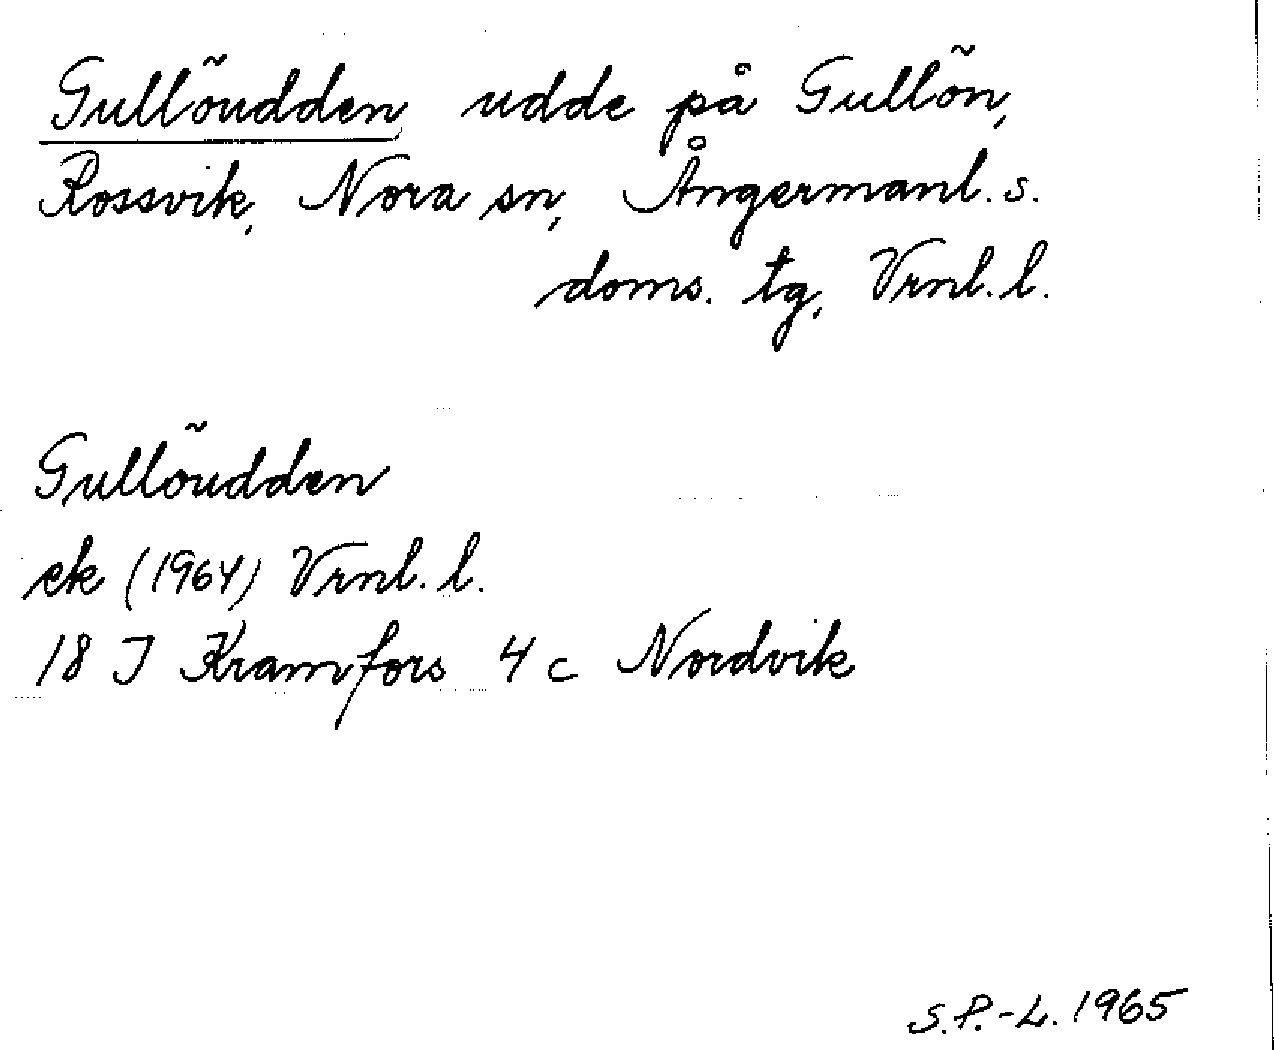 Gullöudden udde på Gullön,
Rossvik, Nora sn, Ångermanl. s.
doms. tg, Vrnl. l.
Gullöudden
ek (1964) Vrnl. l.
18 J Kramfors 4 c Nordvik
S.P.-L. 1965